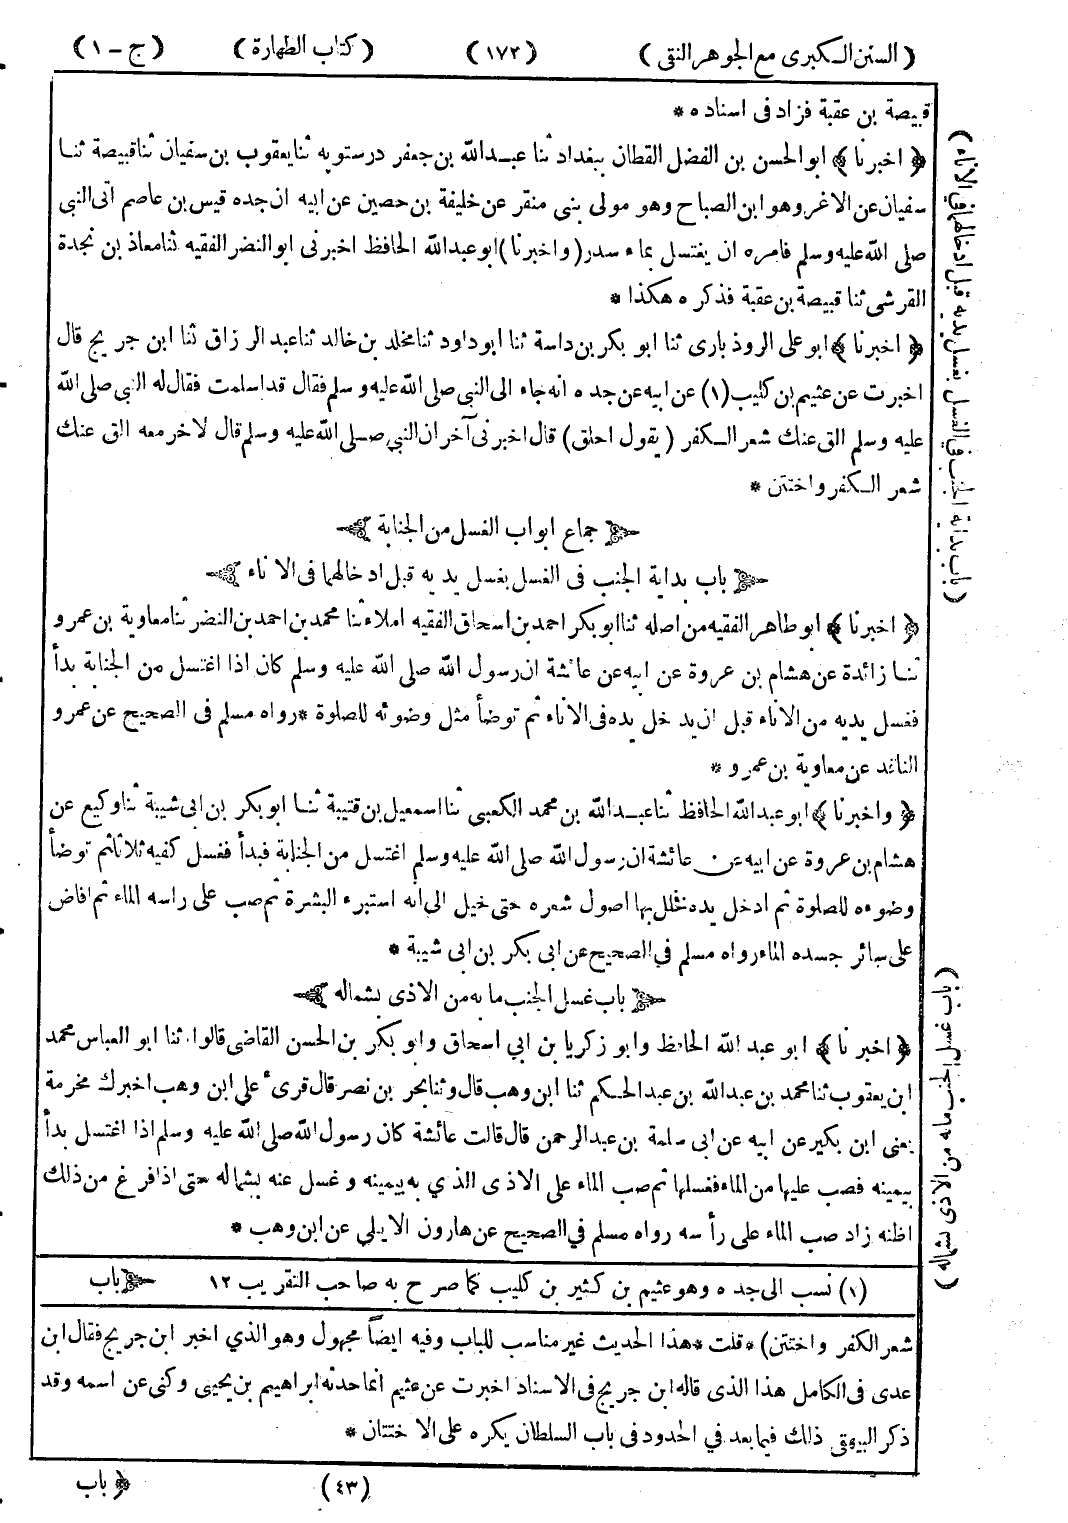 ( السنن الكبرى مع الجوهر النقى ) ( ١٧٢ ) ( كتاب الطهارة ) ( ج - ١ )
قبيصة بن عقبة فزاد فى اسناده *
﴿ اخبرنا ﴾ ابو الحسن بن الفضل القطان ببغداد ثنا عبد الله بن جعفر درستويه ثنا يعقوب بن سفيان ثنا قبيصة ثنا
سفيان عن الاغر وهو ابن الصباح وهو مولى بنى منقر عن خليفة بن حصين عن ابيه ان جده قيس بن عاصم اتى النبى
صلى الله عليه وسلم فامره ان يغتسل بماء سدر ( واخبرنا ) ابو عبد الله الحافظ اخبرنى ابو النضر الفقيه ثنا معاذ بن نجدة
القرشى ثنا قبيصة بن عقبة فذكره هكذا *
﴿ اخبرنا ﴾ ابو على الروذبارى ثنا ابو بكر بن داسة ثنا ابو داود ثنا مخلد بن خالد ثنا عبد الرزاق ثنا ابن جريج قال
اخبرت عن عثيم بن كليب (١) عن ابيه عن جده انه جاء الى النبى صلى الله عليه وسلم فقال قد اسلمت فقال له النبى صلى الله
عليه وسلم الق عنك شعر الكفر ( يقول احلق ) قال اخبرنى آخر ان النبى صلى الله عليه وسلم قال لاخر معه الق عنك
شعر الكفر واختتن *
جماع ابواب الغسل من الجنابة
باب بداية الجنب فى الغسل بغسل يديه قبل ادخالهما فى الاناء
﴿ اخبرنا ﴾ ابو طاهر الفقيه من اصله ثنا ابو بكر احمد بن اسحاق الفقيه املاء ثنا محمد بن احمد بن النضر ثنا معاوية بن عمرو
ثنا زائدة عن هشام بن عروة عن ابيه عن عائشة ان رسول الله صلى الله عليه وسلم كان اذا اغتسل من الجنابة بدأ
فغسل يديه من الاناء قبل ان يدخل يده فى الاناء ثم توضأ مثل وضوئه للصلوة * رواه مسلم فى الصحيح عن عمرو
الناقد عن معاوية بن عمرو *
﴿ واخبرنا ﴾ ابو عبد الله الحافظ ثنا عبد الله بن محمد الكعبى ثنا اسمعيل بن قتيبة ثنا ابو بكر بن ابى شيبة ثنا وكيع عن
هشام بن عروة عن ابيه عن عائشة ان رسول الله صلى الله عليه وسلم اغتسل من الجنابة فبدأ فغسل كفيه ثلاثا ثم توضأ
وضوءه للصلوة ثم ادخل يده فخلل بها اصول شعره حتى خيل الى انه استبرء البشرة ثم صب على راسه الماء ثم افاض
على سائر جسده الماء رواه مسلم في الصحيح عن ابى بكر بن ابى شيبة *
باب غسل الجنب ما به من الاذى بشماله
﴿ اخبرنا ﴾ ابو عبد الله الحافظ وابو زكريا بن ابي اسحاق وابو بكر بن الحسن القاضى قالوا ثنا ابو العباس محمد
ابن يعقوب ثنا محمد بن عبد الله بن عبد الحكم ثنا ابن وهب قال وثنا بحر بن نصر قال قرىء على ابن وهب اخبرك مخرمة
يعنى ابن بكير عن ابيه عن ابى سلمة بن عبد الرحمن قال قالت عائشة كان رسول الله صلى الله عليه وسلم اذا اغتسل بدأ
بيمينه فصب عليها من الماء فغسلها ثم صب الماء على الاذى الذي به بيمينه وغسل عنه بشماله حتى اذا فرغ من ذلك
اظنه زاد صب الماء على رأسه رواه مسلم في الصحيح عن هارون الايلي عن ابن وهب *
(١) نسب الى جده وهو عثيم بن كثير بن كليب كما صرح به صاحب التقريب ١٢ باب
شعر الكفر واختتن ) * قلت * هذا الحديث غير مناسب للباب وفيه ايضاً مجهول وهو الذي اخبر ابن جريج فقال ابن
عدى فى الكامل هذا الذى قاله ابن جريج فى الاسناد اخبرت عن عثيم انما حدثه ابراهيم بن يحيى وكنى عن اسمه وقد
ذكر البيهقى ذلك فيما بعد في الحدود فى باب السلطان يكره على الاختتان *
( ٤٣ ) ﴿ باب
( باب بداية الجنب فى الغسل بغسل يديه قبل ادخالهما في الاناء )
( باب غسل الجنب ما به من الاذى بشماله )